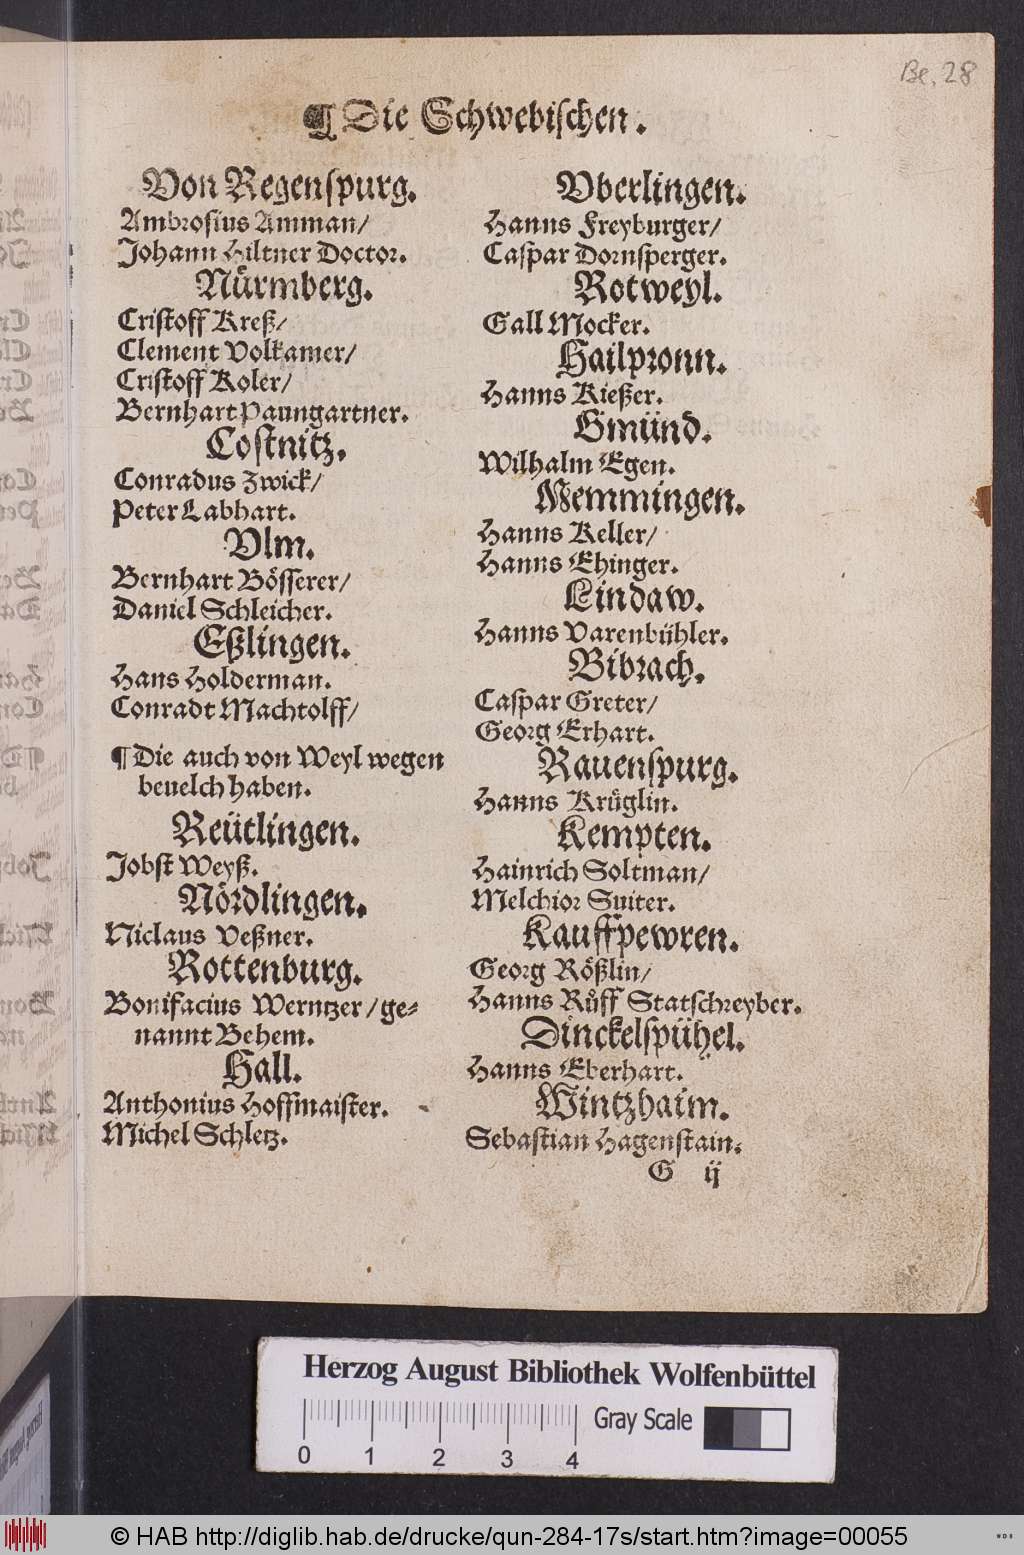 Be. 28
¶ Die Schwebischen.
Von Regenspurg.
Ambrosius Amman/
Johann Hiltner Doctor.
Nürmberg.
Cristoff Kreß/
Clement Volkamer/
Cristoff Koler/
Bernhart Paungartner.
Costnitz.
Conradus Zwick/
Peter Labhart.
Vlm.
Bernhart Bösserer/
Daniel Schleicher.
Eßlingen.
Hans Holderman.
Conradt Machtolff/
¶ Die auch von Weyl wegen
beuelch haben.
Reütlingen.
Jobst Weyß.
Nördlingen.
Niclaus Veßner.
Rottenburg.
Bonifacius Werntzer/ge⸗
nannt Behem.
Hall.
Anthonius Hoffmaister.
Michel Schletz.
Vberlingen.
Hanns Freyburger/
Caspar Dornsperger.
Rotweyl.
Gall Mocker.
Hailpronn.
Hanns Kießer.
Gmünd.
Wilhalm Egen.
Memmingen.
Hanns Keller/
Hanns Ehinger.
Lindaw.
Hanns Varenbühler.
Bibrach.
Caspar Greter/
Georg Erhart.
Rauenspurg.
Hanns Krüglin.
Kempten.
Hainrich Soltman/
Melchior Suiter.
Kauffpewren.
Georg Rößlin/
Hanns Růff Statschreyber.
Dinckelspühel.
Hanns Eberhart.
Wintzhaim.
Sebastian Hagenstain.
G ij
Herzog August Bibliothek Wolfenbüttel
0 1 2 3 4
Gray Scale
© HAB http://diglib.hab.de/drucke/qun-284-17s/start.htm?image=00055